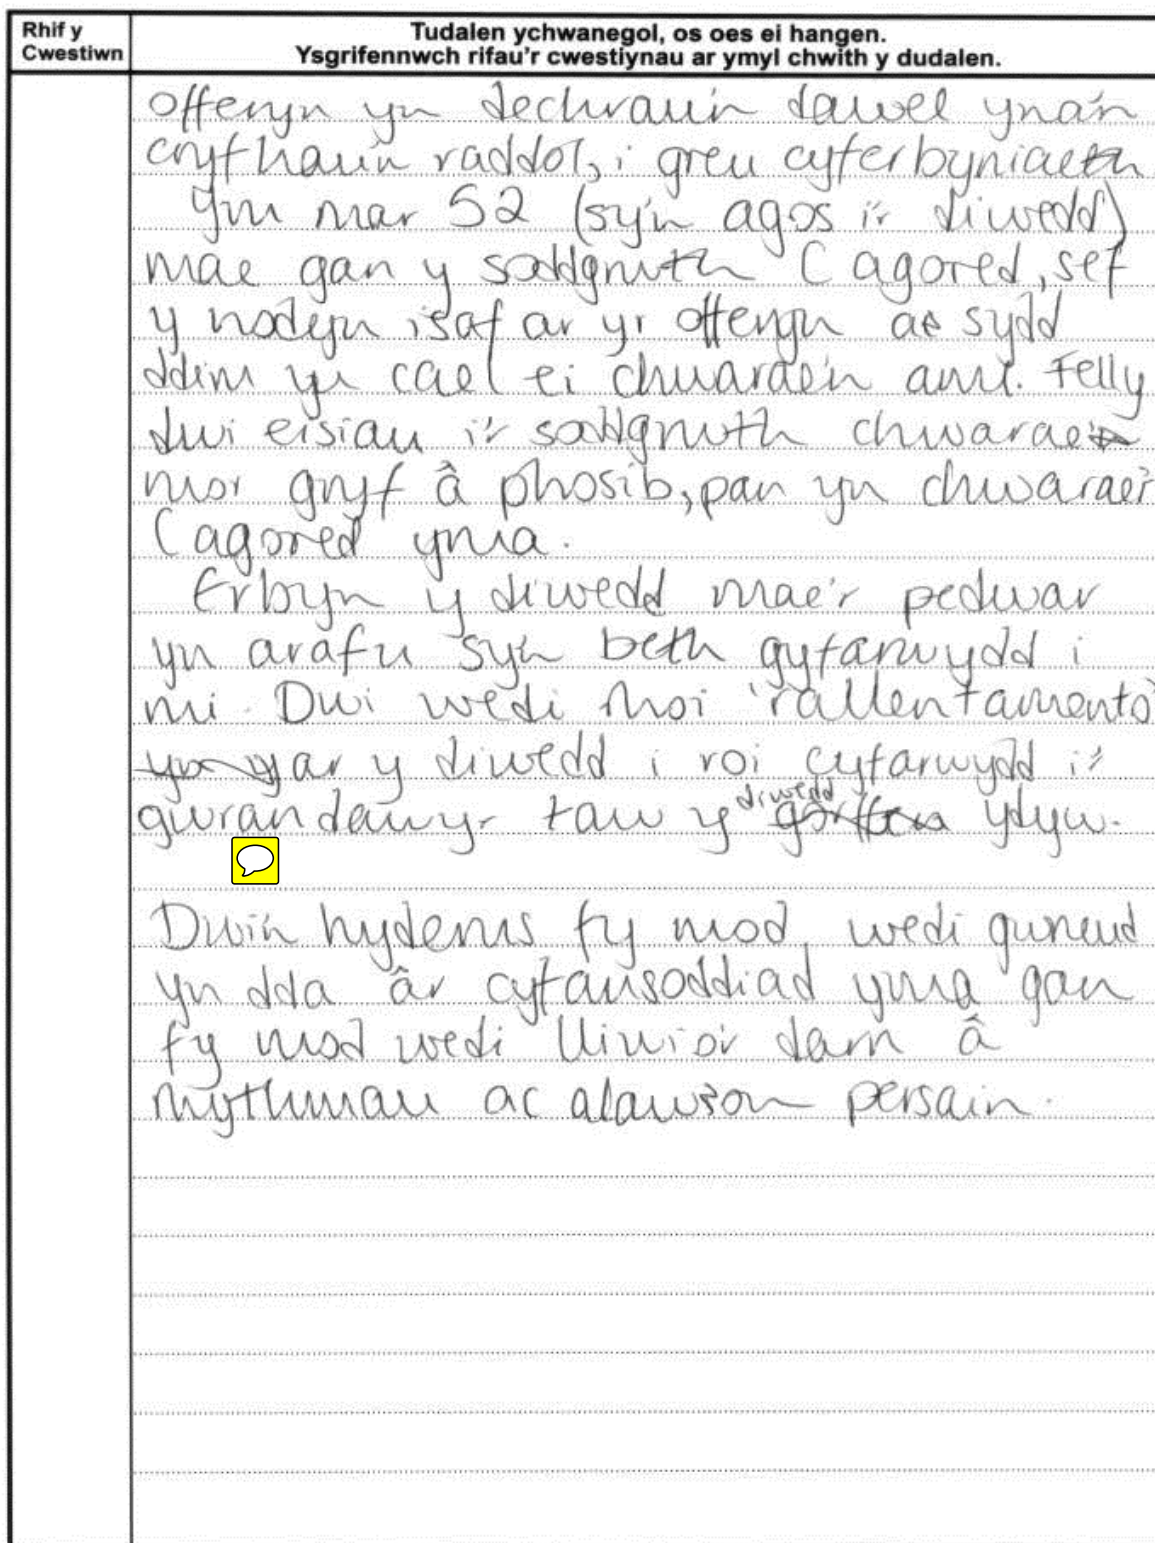 Rhif y
Cwestiwn
Tudalen ychwanegol, os oes ei hangen.
Ysgrifennwch rifau'r cwestiynau ar ymyl chwith y dudalen.
offeryn yn dechrau'n dawel yna'n
cryfhau'n raddol, i greu cyferbyniaeth
Ym mar 52 (sy'n agos i'r diwedd)
mae gan y soddgrwth C agored, sef
y nodyn isaf ar yr offeryn ac sydd
ddim yn cael ei chwarae'n aml. Felly
dwi eisiau i'r soddgrwth chwarae
mor gryf â phosib, pan yn chwarae'r
C agored yma.
Erbyn y diwedd mae'r pedwar
yn arafu sy'n beth gyfarwydd i
mi. Dwi wedi rhoi 'rallentamento'
ar y diwedd i roi cyfarwydd i'r
gwrandawyr taw y diwedd ydyw.
Dwi'n hyderus fy mod wedi gwneud
yn dda â'r cyfansoddiad yma gan
fy mod wedi lliwio'r darn â
rhythmau ac alawson persain.